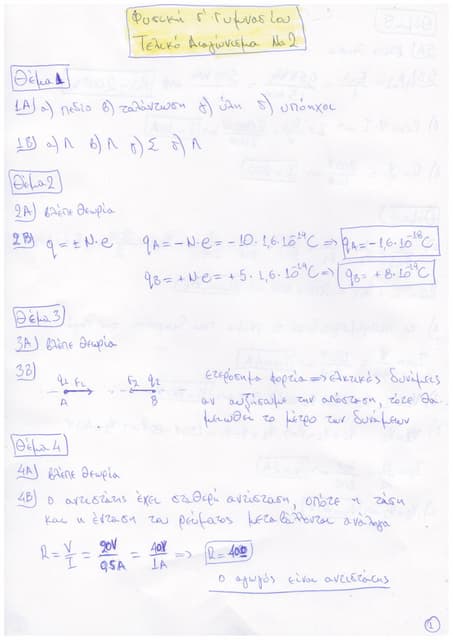 Φυσική Γ' Γυμνασίου
Τελικό Διαγώνισμα Νο2
Θέμα 1
1Α) α) πεδίο β) ταλάντωση γ) ύλη δ) υπόηχοι
1Β) α) Λ β) Λ γ) Σ δ) Λ
Θέμα 2
2Α) βλέπε θεωρία
2Β) q = ± N·e qA = −N·e = −10·1,6·10⁻¹⁹C ⇒ qA = −1,6·10⁻¹⁸C
qB = +N·e = +5·1,6·10⁻¹⁹C ⇒ qB = +8·10⁻¹⁹C
Θέμα 3
3Α) βλέπε θεωρία
3Β) q1 F1 F2 q2 ετερόσημα φορτία ⇒ ελκτικές δυνάμεις
A B αν αυξήσουμε την απόσταση, τότε θα
μειωθεί το μέτρο των δυνάμεων
Θέμα 4
4Α) βλέπε θεωρία
4Β) Ο αντιστάτης έχει σταθερή αντίσταση, οπότε η τάση
και η ένταση του ρεύματος μεταβάλλονται ανάλογα
R = V/I = 20V/0,5A = 40V/1A ⇒ R = 40Ω
ο αγωγός είναι αντιστάτης
1